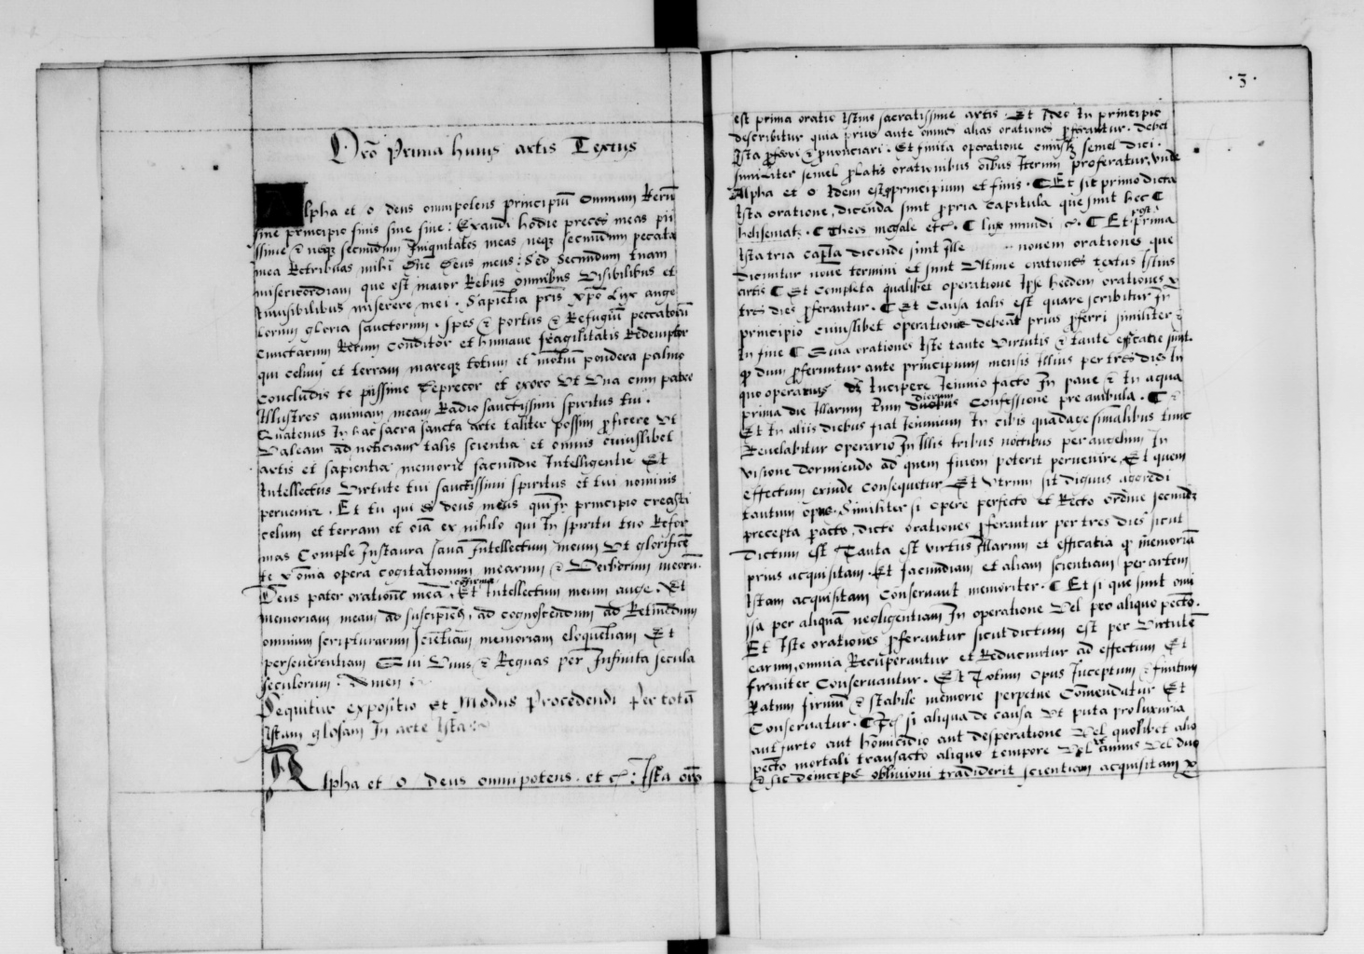 Orõ Prima huius artis Textus
Alpha et o deus omnipotens principiũ omnium Rerũ
sine principio finis sine fine: Exaudi hodie preces meas pii
ssime & neqȝ secundum Iniquitates meas neqȝ secundum peccata
mea Retribuas mihi Dñe Deus meus: Sed Secundum tuam
misericordiam que est maior Rebus omnibus Visibilibus et
Inuisibilibus miserere mei. Sapientia pris xpo Lux ange
lorum gloria sanctorum. spes & portus & Refugiũ peccatorũ
Cunctarum Rerum Conditor et humane fragilitatis Redemptor
qui celum et terram mareqȝ totum et motium pondera palmo
Concludis te piissime Deprecor et exoro Vt Vna cum patre
Illustres animam meam Radio sanctissimi spiritus tui.
Quatenus In hac sacra sancta arte taliter possim proficere Vt
Valeam ad noticiam talis scientie et omnis cuiuslibet
artis et sapientie memorie facundie Intelligentie Et
Intellectus Virtute tui sanctissimi spiritus et tui nominis
peruenire. Et tu qui es deus meus qui In principio creasti
celum et terram et oĩa ex nihilo qui In spiritu tuo Refor
mas Comple Instaura sana Intellectum meum Vt glorificẽ
te omnia opera cogitationum mearum & Verborum meorũ.
Deus pater orationẽ meã confirma Et Intellectum meum auge. Et
memoriam meam ad suscipiendũ, ad cognoscendum ad Retinendum
omnium scripturarum scientiam memoriam eloquentiam Et
perseuerentiam Qui Viuis & Regnas per Infinita secula
seculorum: Amen.
Sequitur expositio et Modus Procedendi per totã
Istam glosam In arte Ista
Alpha et o deus omnipotens. et c: Ista orõ
·3·
est prima oratio Istius sacratissime artis. Et Ideo In principio
describitur quia prius ante omnes alias orationes proferantur. debet
Ista proferri & pronunciari. Et finita operatione semel dici.
similiter semel prolatis orationibus oĩbus Iterum proferatur, unde
Alpha et o Idem est principium et finis. ¶ Et sit primo dicta
Ista oratione, dicenda sunt propria Capitula que sunt hec ¶
helisemath. ¶ Theos megale etc. ¶ lux mundi &c. ¶ Et post prima
Ista tria capla dicende sunt Ille novem orationes que
Dicuntur noue termini et sunt Vltime orationes textus Istius
artis ¶ Et Completa qualibet operatione Ipse hedem orationes
tres dies proferantur. ¶ Et Causa talis est quare scribitur In
principio cuiuslibet operatione debeãt prius proferri similiter &
In fine ¶ Quia orationes Iste tante Virtutis & tante efficatie sunt.
qȝ dum proferuntur ante principium mensis Illius per tres dies In
quo operatus Incipere Ieiunio facto In pane & In aqua
prima die Illarum trium dierum Confessione pre ambula. ¶
Et In aliis diebus fiat Ieiunium In cibis quadragesimalibus tunc
Reuelabitur operario In Illis tribus noctibus per angelum In
visione dormiendo ad quem finem poterit peruenire, Et quem
effectum exinde Consequetur Et Vtrum sit dignus agredi
tantum opus. Similiter si opere perfecto et Recto ordine secundũ
precepta peracto, dicte orationes proferantur per tres dies sicut
Dictum est Tanta est virtus Illarum et efficatia qȝ memoria
prius acquisitam. Et facundiam et aliam scientiam per artem
Istam acquisitam Conseruant memoriter. ¶ Et si que sunt omi
ssa per aliquã negligentiam In operatione Vel pro aliquo pecto.
Et Iste orationes proferantur sicut dictum est per Virtutẽ
earum, omnia Recuperantur et Reducuntur ad effectum Et
firmiter Conseruantur. Et Totum opus Inceptum & finitum
Ratum firmũ & stabile memorie perpetue Comendatur Et
Conseruatur. ¶ si aliqua de causa Vt puta pro luxuria
aut furto aut homicidio aut desperatione Vel quolibet alio
pecto mortali transacto aliquo tempore Vel annus Vel duo
& sic deinceps obliuioni tradiderit scientiam acquisitam